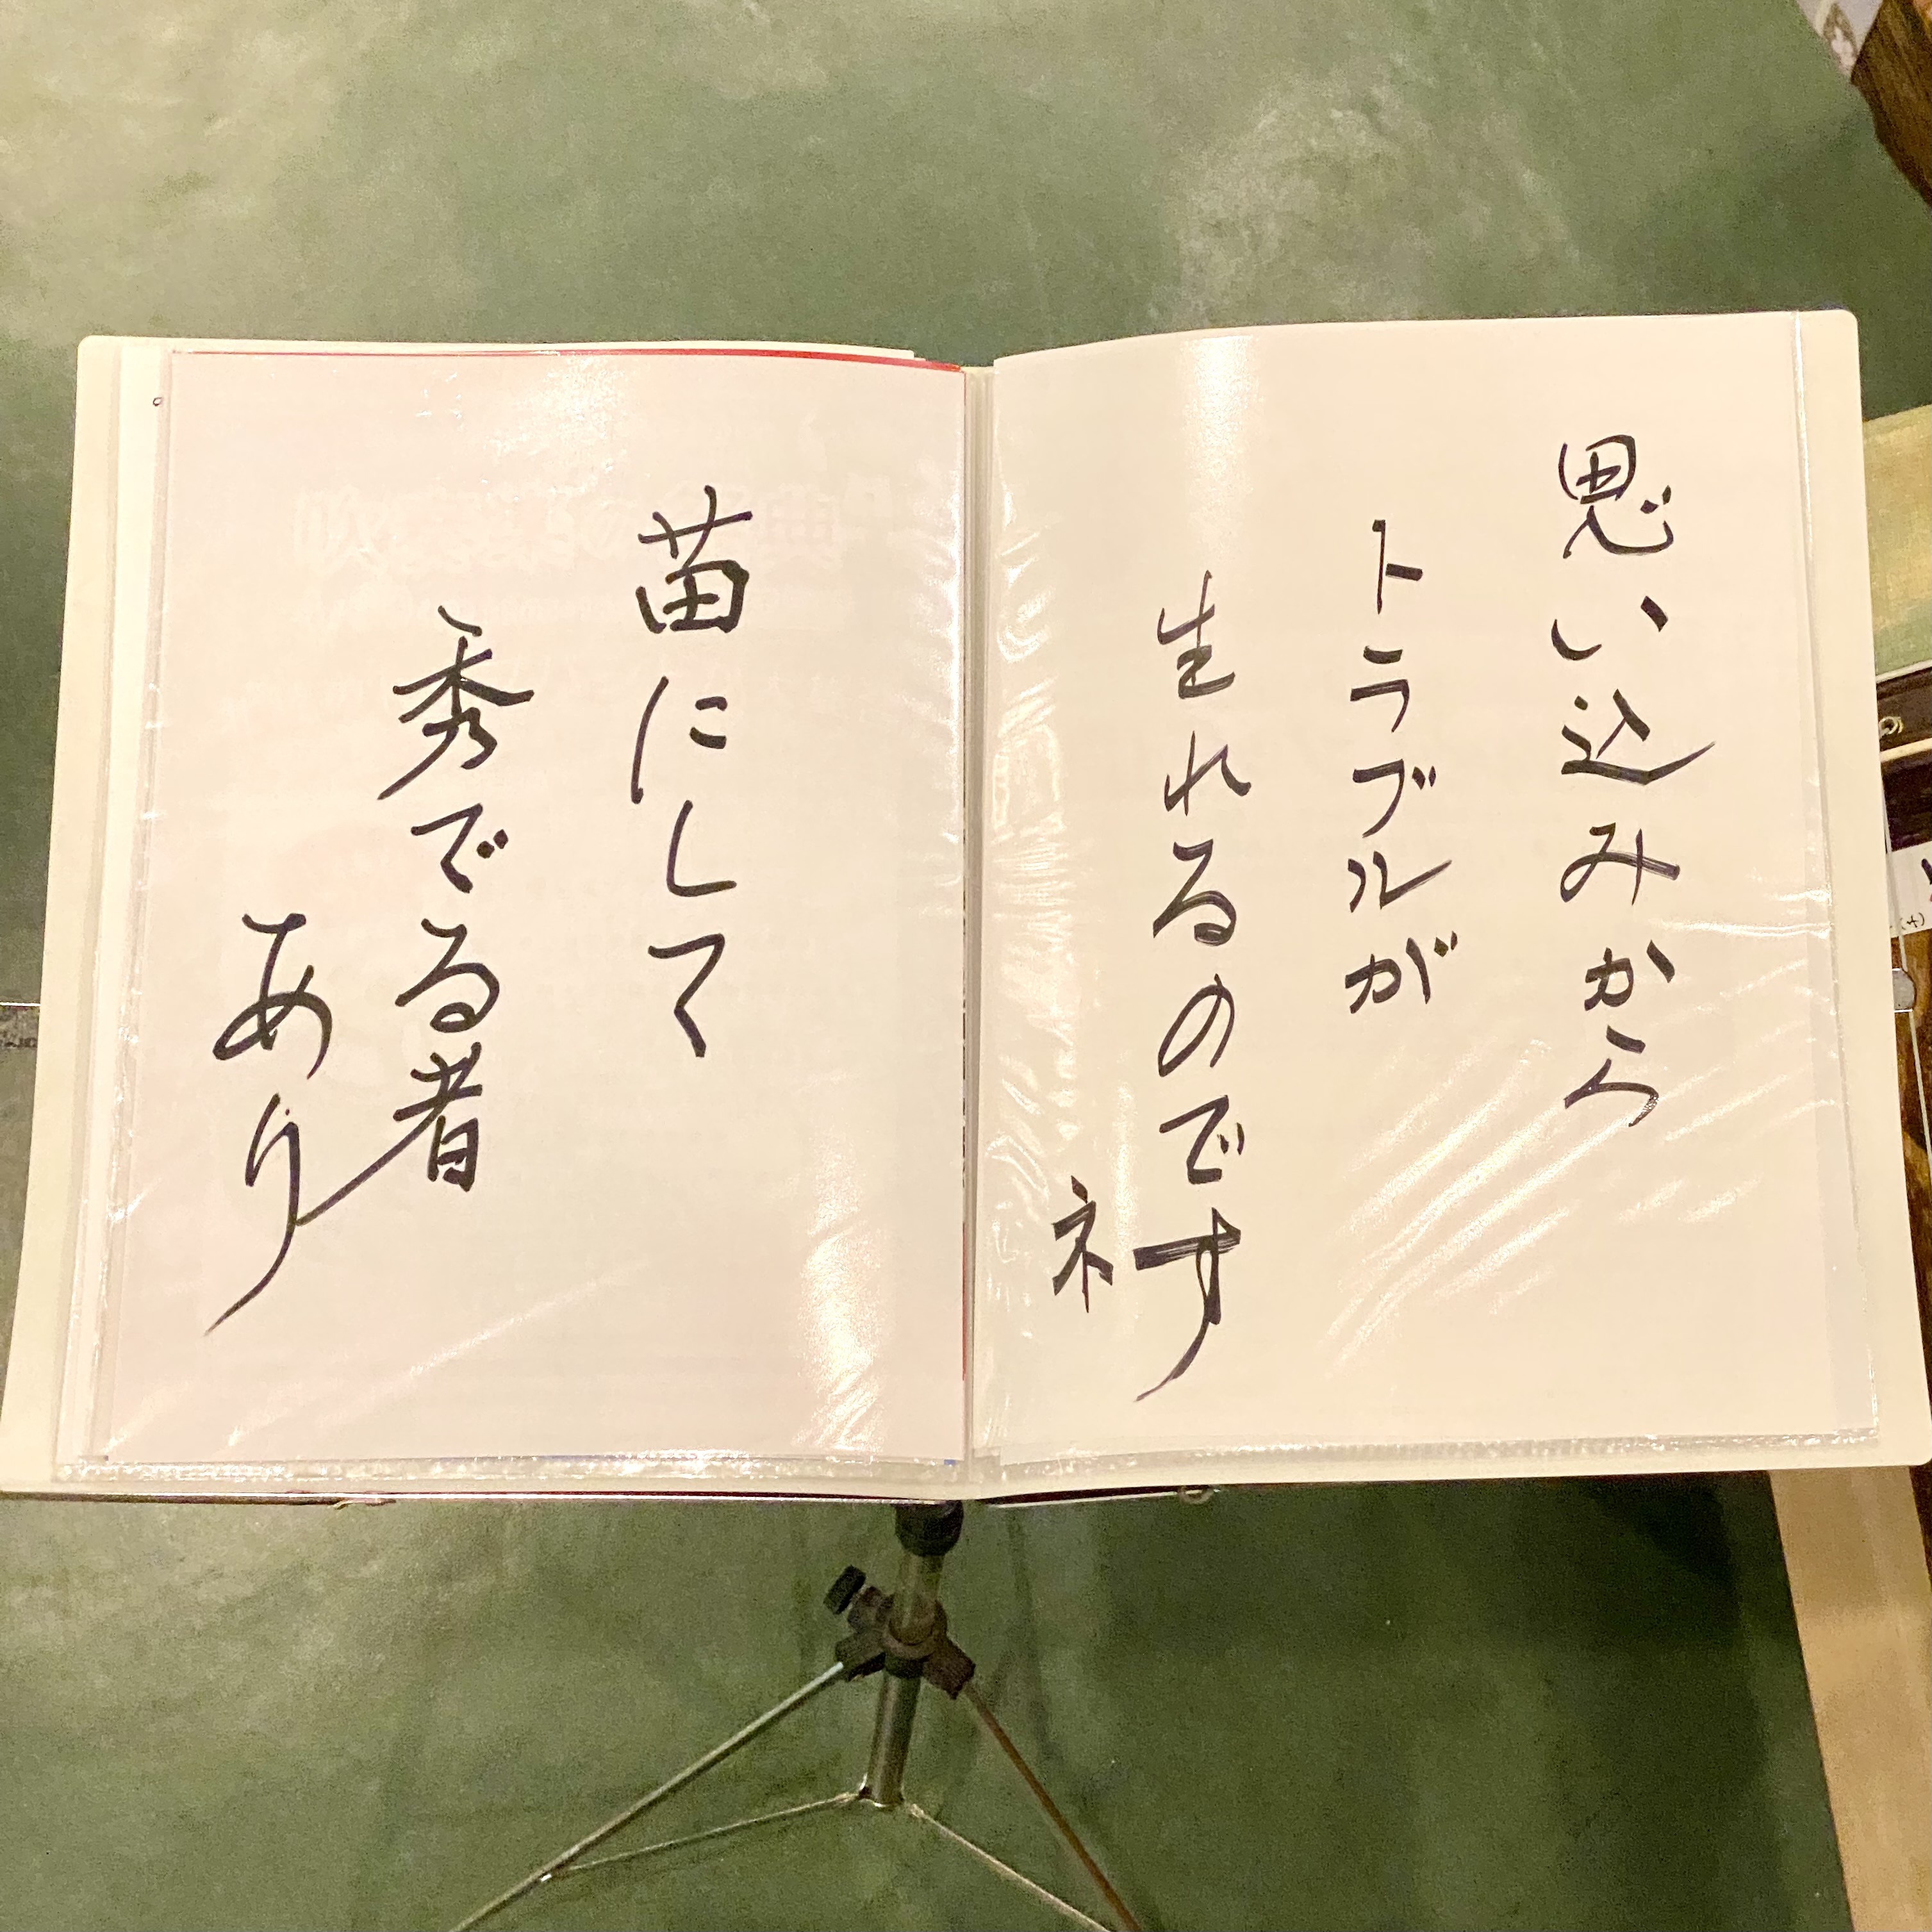 思い込みから
トラブルが
生れるのです
ネ
苗にして
秀でる者
あり